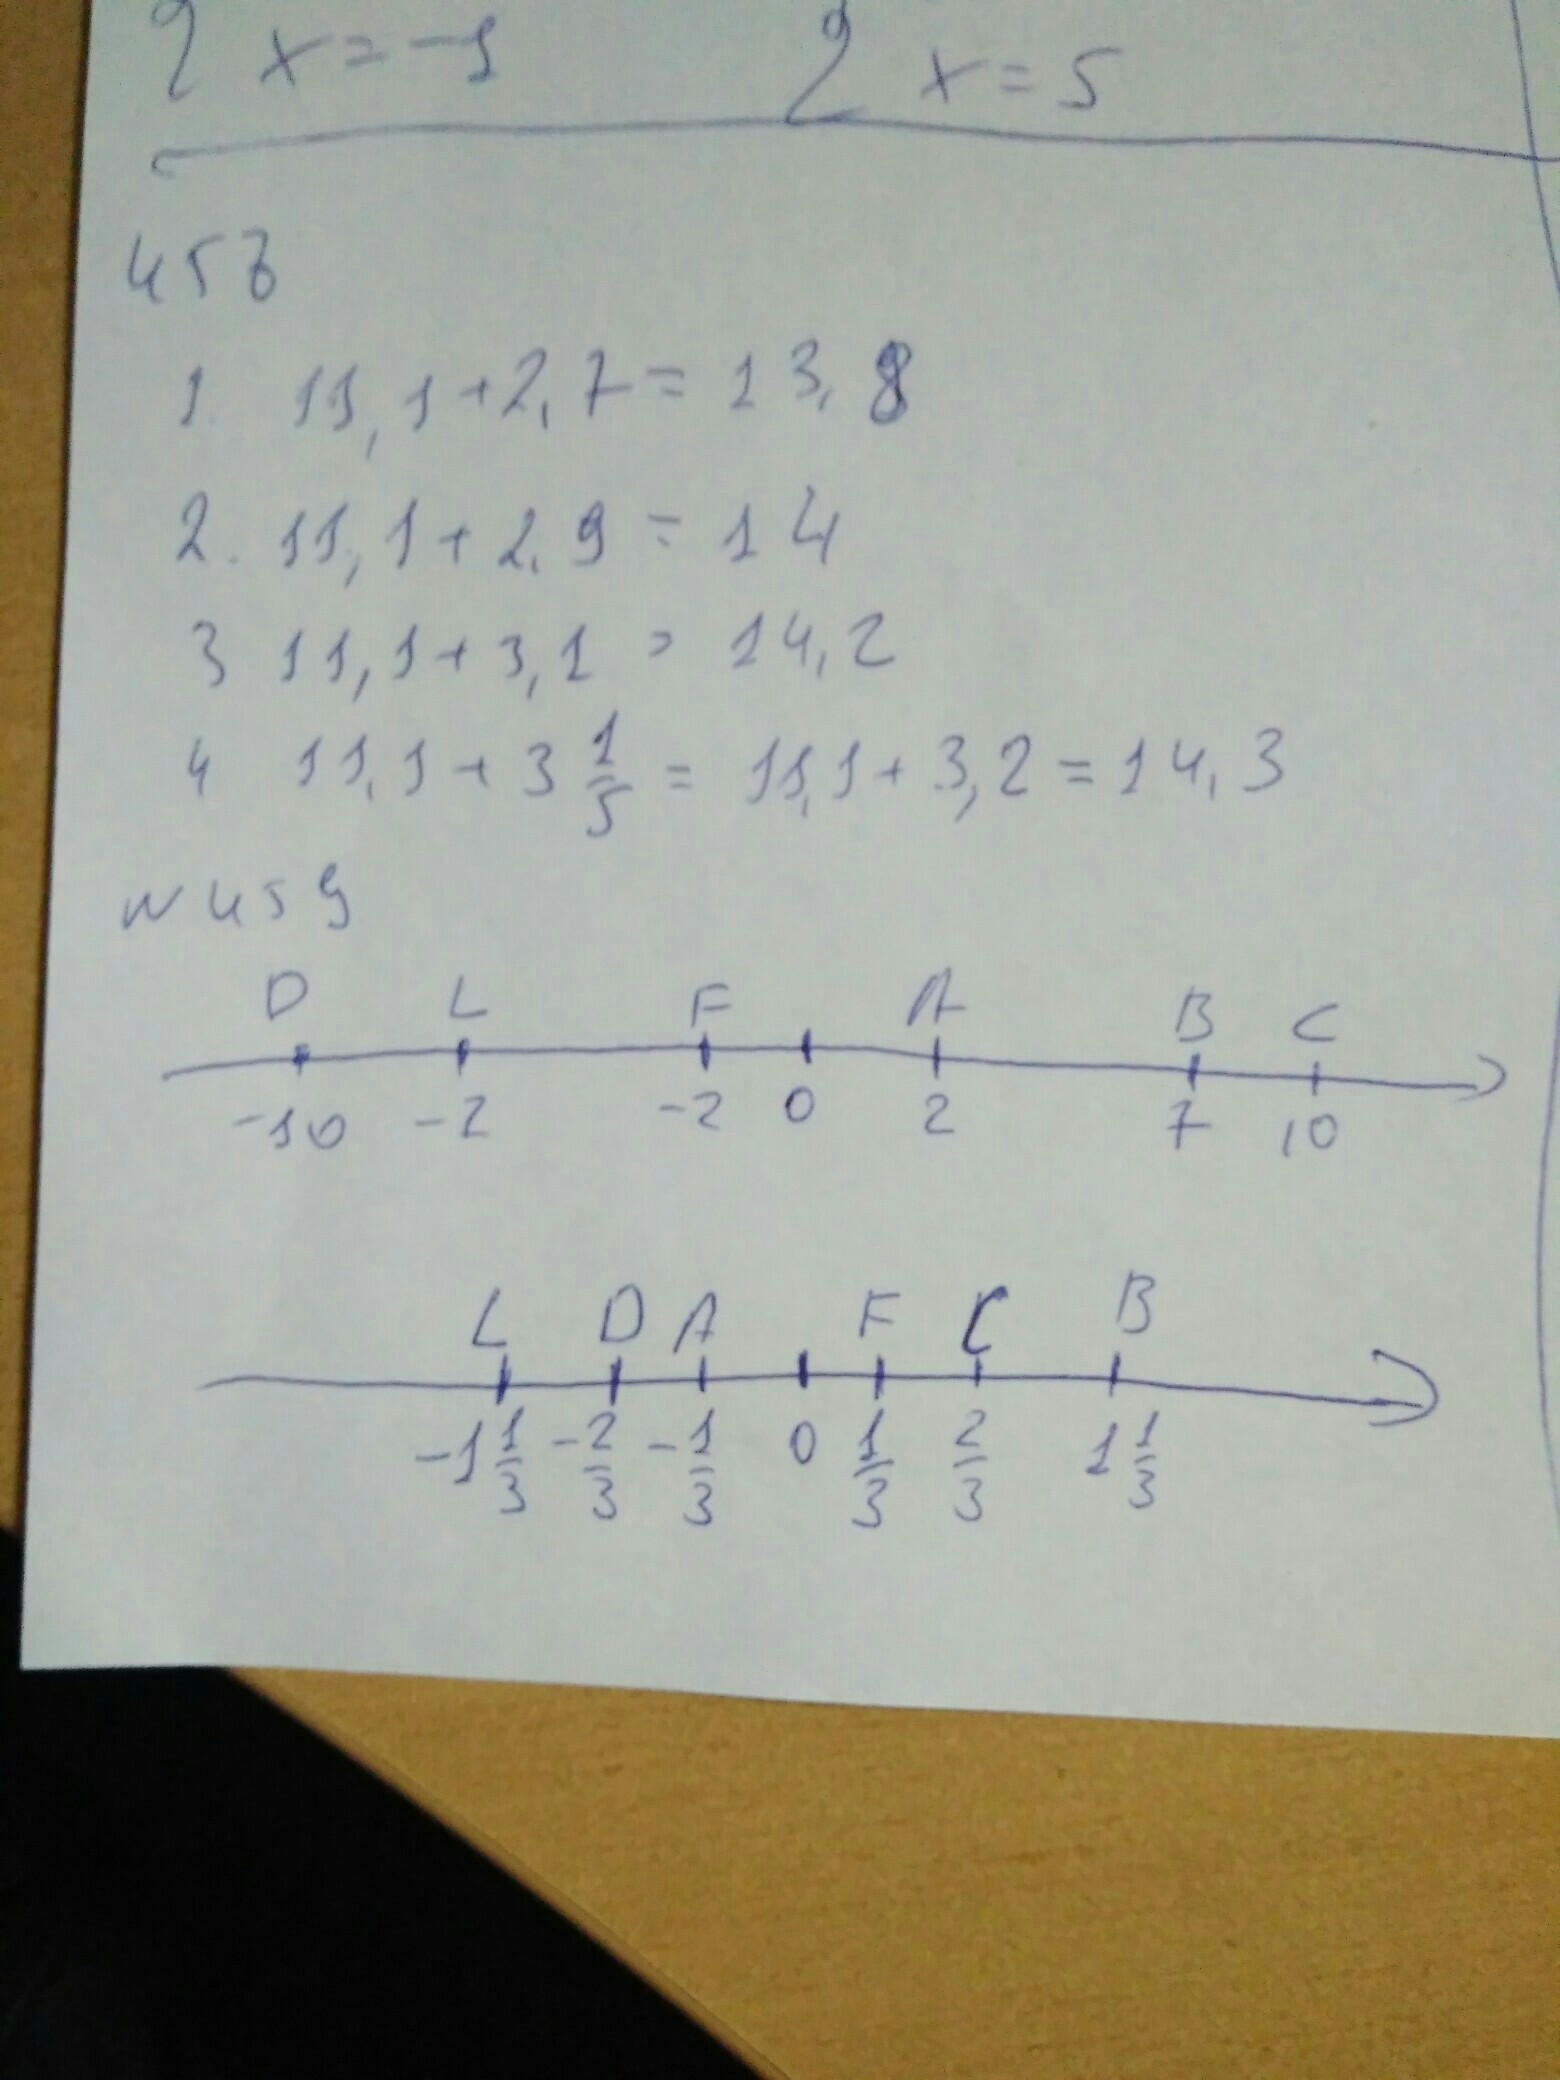 x = -1 x = 5
458
1. 11,1 + 2,7 = 13,8
2. 11,1 + 2,9 = 14
3 11,1 + 3,1 = 14,2
4 11,1 + 3 1/5 = 11,1 + 3,2 = 14,3
N 459
D L F A B C
-10 -2 -2 0 2 7 10
L D A F C B
-1 1/3 -2/3 -1/3 0 1/3 2/3 1 1/3